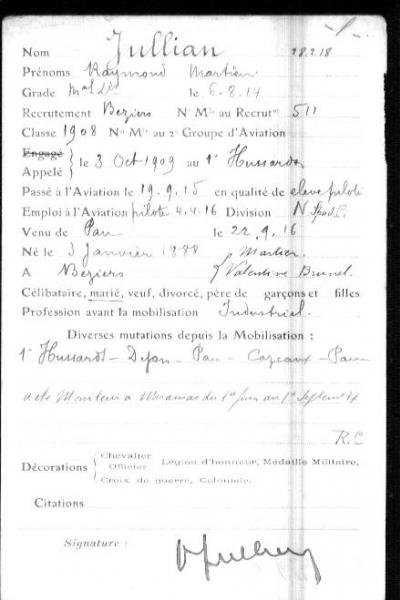 Nom Jullian 28.2.18
Prénoms Raymond Martin
Grade Mal dis le 6.8.14
Recrutement Beziers No Mle au Recrutnt 511
Classe 1908 No Mle au 2e Groupe d'Aviation
Engagé
Appelé le 3 Oct 1909 au 1r Hussards
Passé à l'Aviation le 19.9.15 en qualité de eleve pilote
Emploi à l'Aviation pilote 4.4.16 Division N
Venu de Pau le 22.9.16
Né le 3 Janvier 1888 Martin
A Beziers Valentine Brunel
Célibataire, marié, veuf, divorcé, père de garçons et filles
Profession avant la mobilisation Industriel.
Diverses mutations depuis la Mobilisation :
1r Hussards - Dijon - Pau - Cazeaux - Pau
a été Moniteur à Miramas du 1er Juin au 1er Septembre 17
R.C
Décorations Chevalier
Officier Légion d'honneur, Médaille Militaire,
Croix de guerre, Coloniale.
Citations
Signature :